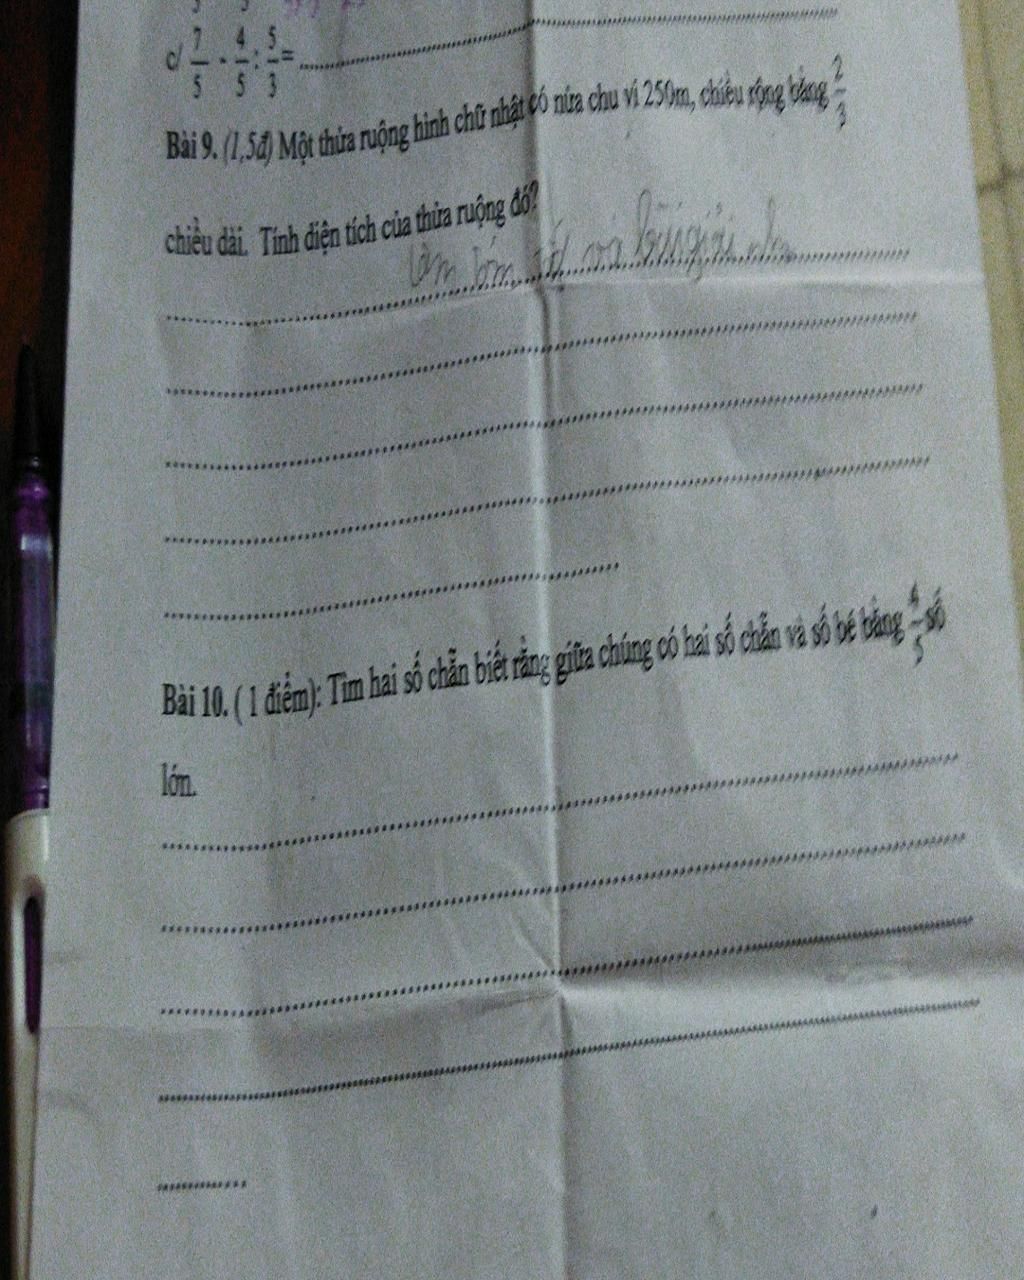 c/ 7/5 - 4/5 : 5/3 =
Bài 9. (1,5đ) Một thửa ruộng hình chữ nhật có nửa chu vi 250m, chiều rộng bằng 2/3
chiều dài. Tính diện tích của thửa ruộng đó?
và bài giải
Bài 10. ( 1 điểm): Tìm hai số chẵn biết rằng giữa chúng có hai số chẵn và số bé bằng 4/5 số
lớn.